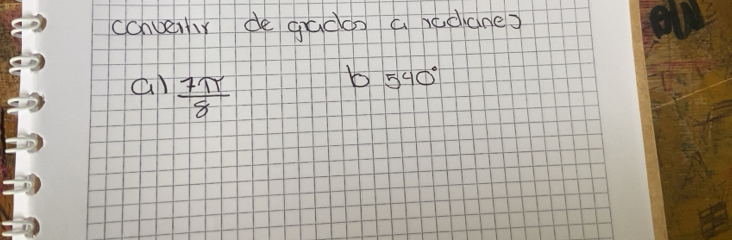 convertir de grados a radianes
a) 7π/8 b 540°